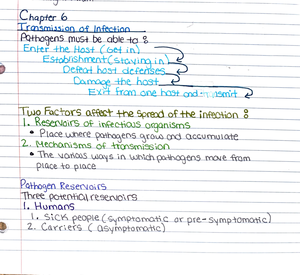 Chapter 6
Transmission of Infection
Pathogens must be able to :
Enter the Host (Get in)
Establishment (staying in)
Defeat host defenses
Damage the host
Exit from one host and transmit
Two Factors affect the spread of the infection :
1. Reservoirs of infectious organisms
• Place where pathogens grow and accumulate
2. Mechanisms of transmission
• The various ways in which pathogens move from
place to place
Pathogen Reservoirs
Three potential reservoirs
1. Humans
1. Sick people (symptomatic or pre-symptomatic)
2. Carriers (asymptomatic)